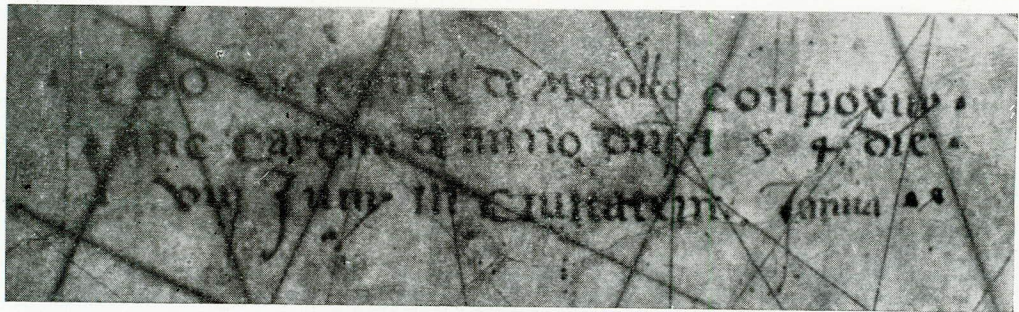 Ego Vesconte de Maiollo conpoxuy.
hanc cartam de anno dnj 1 5 4. die.
viij Junij in civitatem Janua